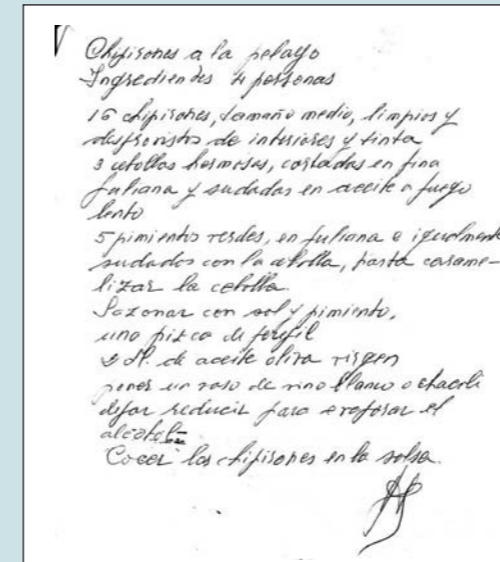 Chipirones a la pelayo
Ingredientes 4 personas
16 chipirones, tamaño medio, limpios y
desprovistos de interiores y tinta
3 cebollas hermosas, cortadas en fina
juliana y sudadas en aceite a fuego
lento
5 pimientos verdes, en juliana e igualmente
sudados con la cebolla, hasta carame-
lizar la cebolla.
Sazonar con sal y pimienta,
una pizca de perejil
dl. de aceite oliva virgen
poner un vaso de vino blanco o chacolí
dejar reducir para evaporar el
alcohol
Cocer los chipirones en la salsa.